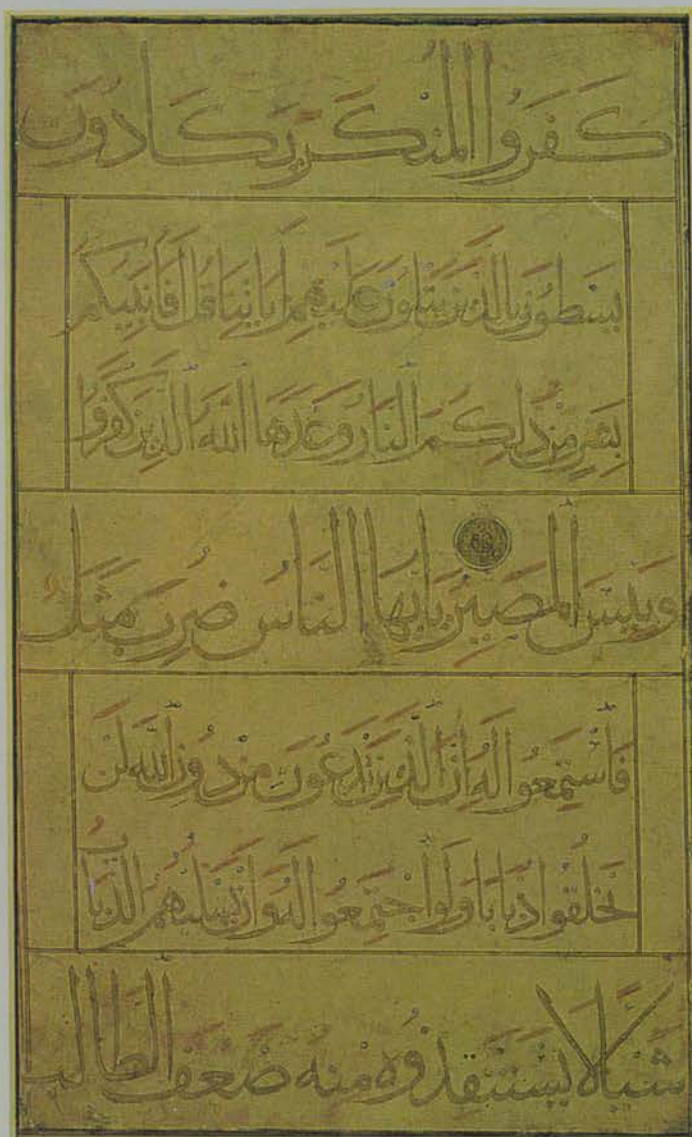 كَفَرُوا الْمُنْكَرَ يَكَادُونَ
يَسْطُونَ بِالَّذِينَ يَتْلُونَ عَلَيْهِمْ آيَاتِنَا قُلْ أَفَأُنَبِّئُكُمْ
بِشَرٍّ مِنْ ذَلِكُمُ النَّارُ وَعَدَهَا اللَّهُ الَّذِينَ كَفَرُوا
وَبِئْسَ الْمَصِيرُ يَا أَيُّهَا النَّاسُ ضُرِبَ مَثَلٌ
فَاسْتَمِعُوا لَهُ إِنَّ الَّذِينَ تَدْعُونَ مِنْ دُونِ اللَّهِ لَنْ
يَخْلُقُوا ذُبَابًا وَلَوِ اجْتَمَعُوا لَهُ وَإِنْ يَسْلُبْهُمُ الذُّبَابُ
شَيْئًا لَا يَسْتَنْقِذُوهُ مِنْهُ ضَعُفَ الطَّالِبُ